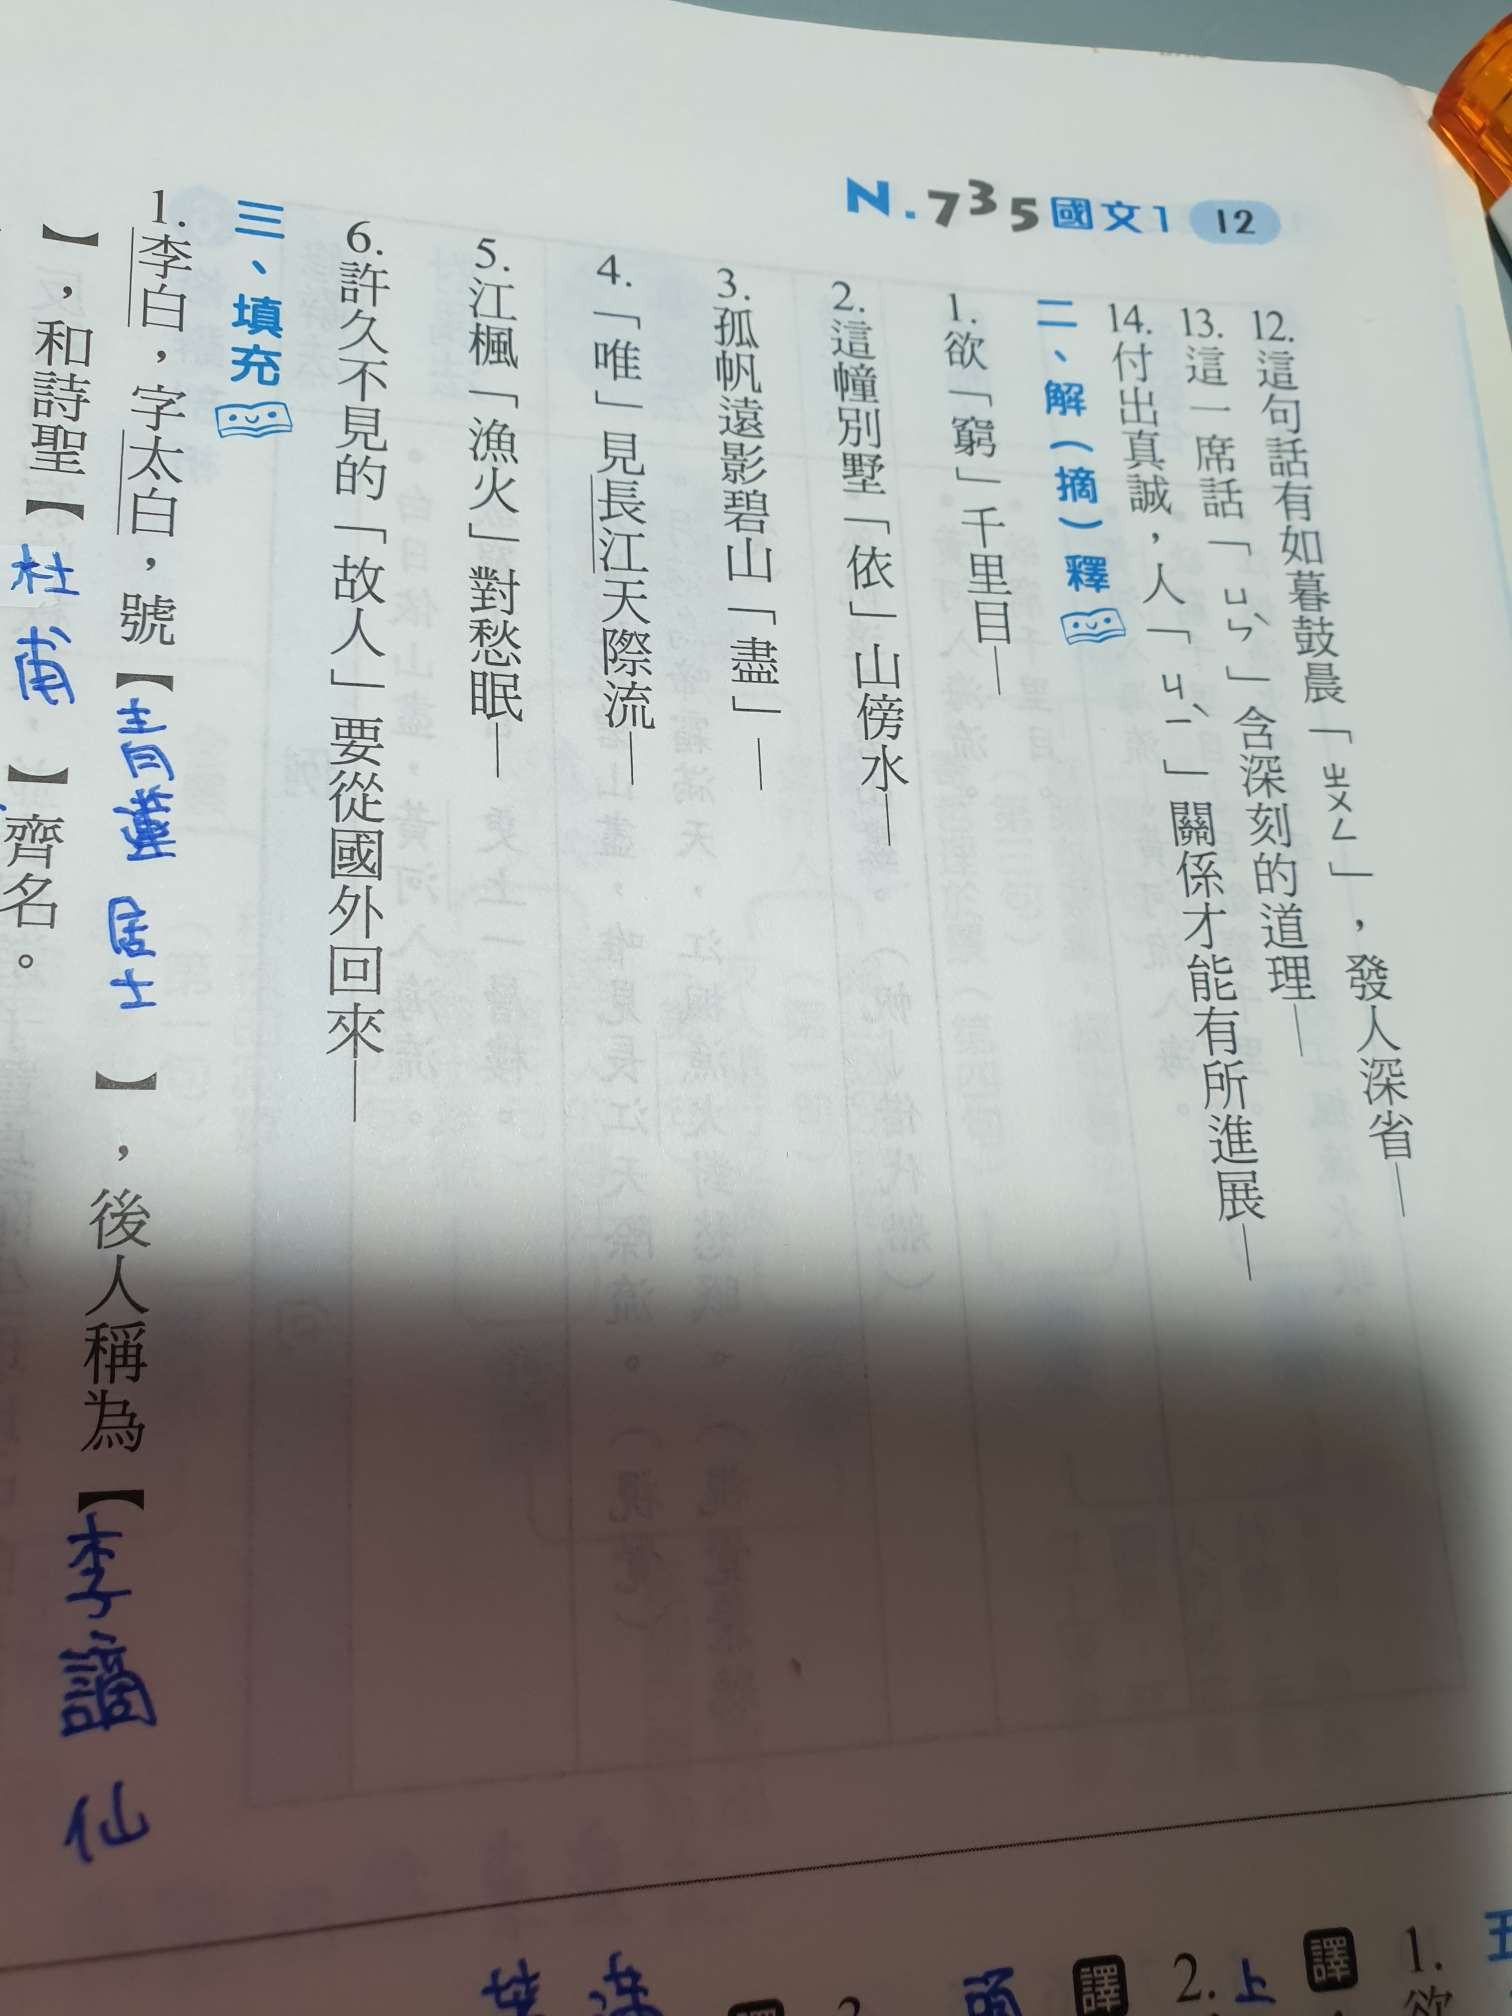 N.735國文1 12
12.這句話有如暮鼓晨「ㄓㄨㄥ」，發人深省—
13.這一席話「ㄩㄣˋ」含深刻的道理—
14.付出真誠，人「ㄐㄧˋ」關係才能有所進展—
二、解（摘）釋
1.欲「窮」千里目—
2.這幢別墅「依」山傍水—
3.孤帆遠影碧山「盡」—
4.「唯」見長江天際流—
5.江楓「漁火」對愁眠—
6.許久不見的「故人」要從國外回來—
三、填充
1.李白，字太白，號【青蓮居士】，後人稱為【李謫仙
】，和詩聖【杜甫】齊名。
五
1.欲
譯
2.上
譯